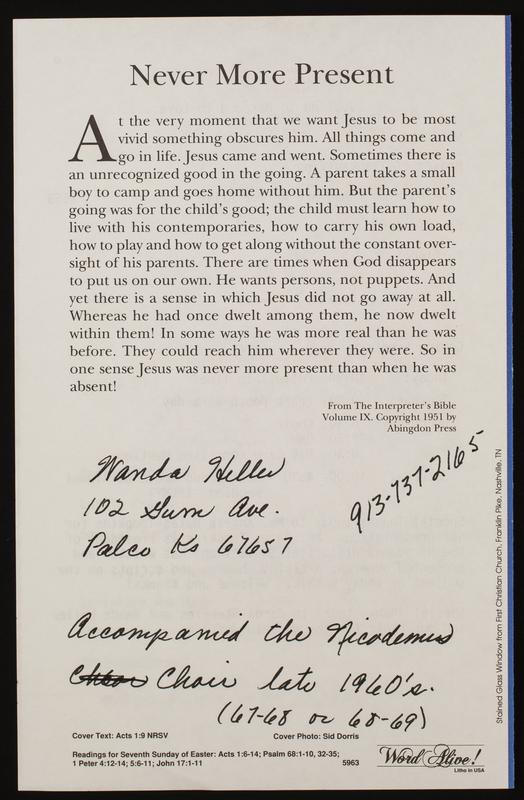 Never More Present
At the very moment that we want Jesus to be most
vivid something obscures him. All things come and
go in life. Jesus came and went. Sometimes there is
an unrecognized good in the going. A parent takes a small
boy to camp and goes home without him. But the parent's
going was for the child's good; the child must learn how to
live with his contemporaries, how to carry his own load,
how to play and how to get along without the constant over-
sight of his parents. There are times when God disappears
to put us on our own. He wants persons, not puppets. And
yet there is a sense in which Jesus did not go away at all.
Whereas he had once dwelt among them, he now dwelt
within them! In some ways he was more real than he was
before. They could reach him wherever they were. So in
one sense Jesus was never more present than when he was
absent!
From The Interpreter's Bible
Volume IX. Copyright 1951 by
Abingdon Press
Wanda Heller
102 Gum Ave.
Palco Ks 67657
913-737-2165
Accompanied the Nicodemus
Choir late 1960's.
(67-68 or 68-69)
Cover Text: Acts 1:9 NRSV
Cover Photo: Sid Dorris
Readings for Seventh Sunday of Easter: Acts 1:6-14; Psalm 68:1-10, 32-35;
1 Peter 4:12-14; 5:6-11; John 17:1-11
5963
Word Alive!
Litho in USA
Stained Glass Window from First Christian Church, Franklin Pike, Nashville, TN